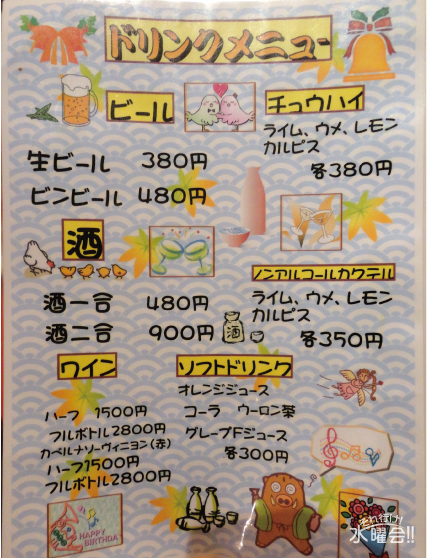 ドリンクメニュー
ビール
生ビール 380円
ビンビール 480円
チュウハイ
ライム、ウメ、レモン
カルピス
各380円
酒
酒一合 480円
酒二合 900円
酒
ノンアルコールカクテル
ライム、ウメ、レモン
カルピス
各350円
ワイン
ハーフ 1500円
フルボトル2800円
カベルナソーヴィニヨン(赤)
ハーフ1500円
フルボトル2800円
ソフトドリンク
オレンジジュース
コーラ ウーロン茶
グレープFジュース
各300円
HAPPY
BIRTHDAY
それ行け!
水曜会!!